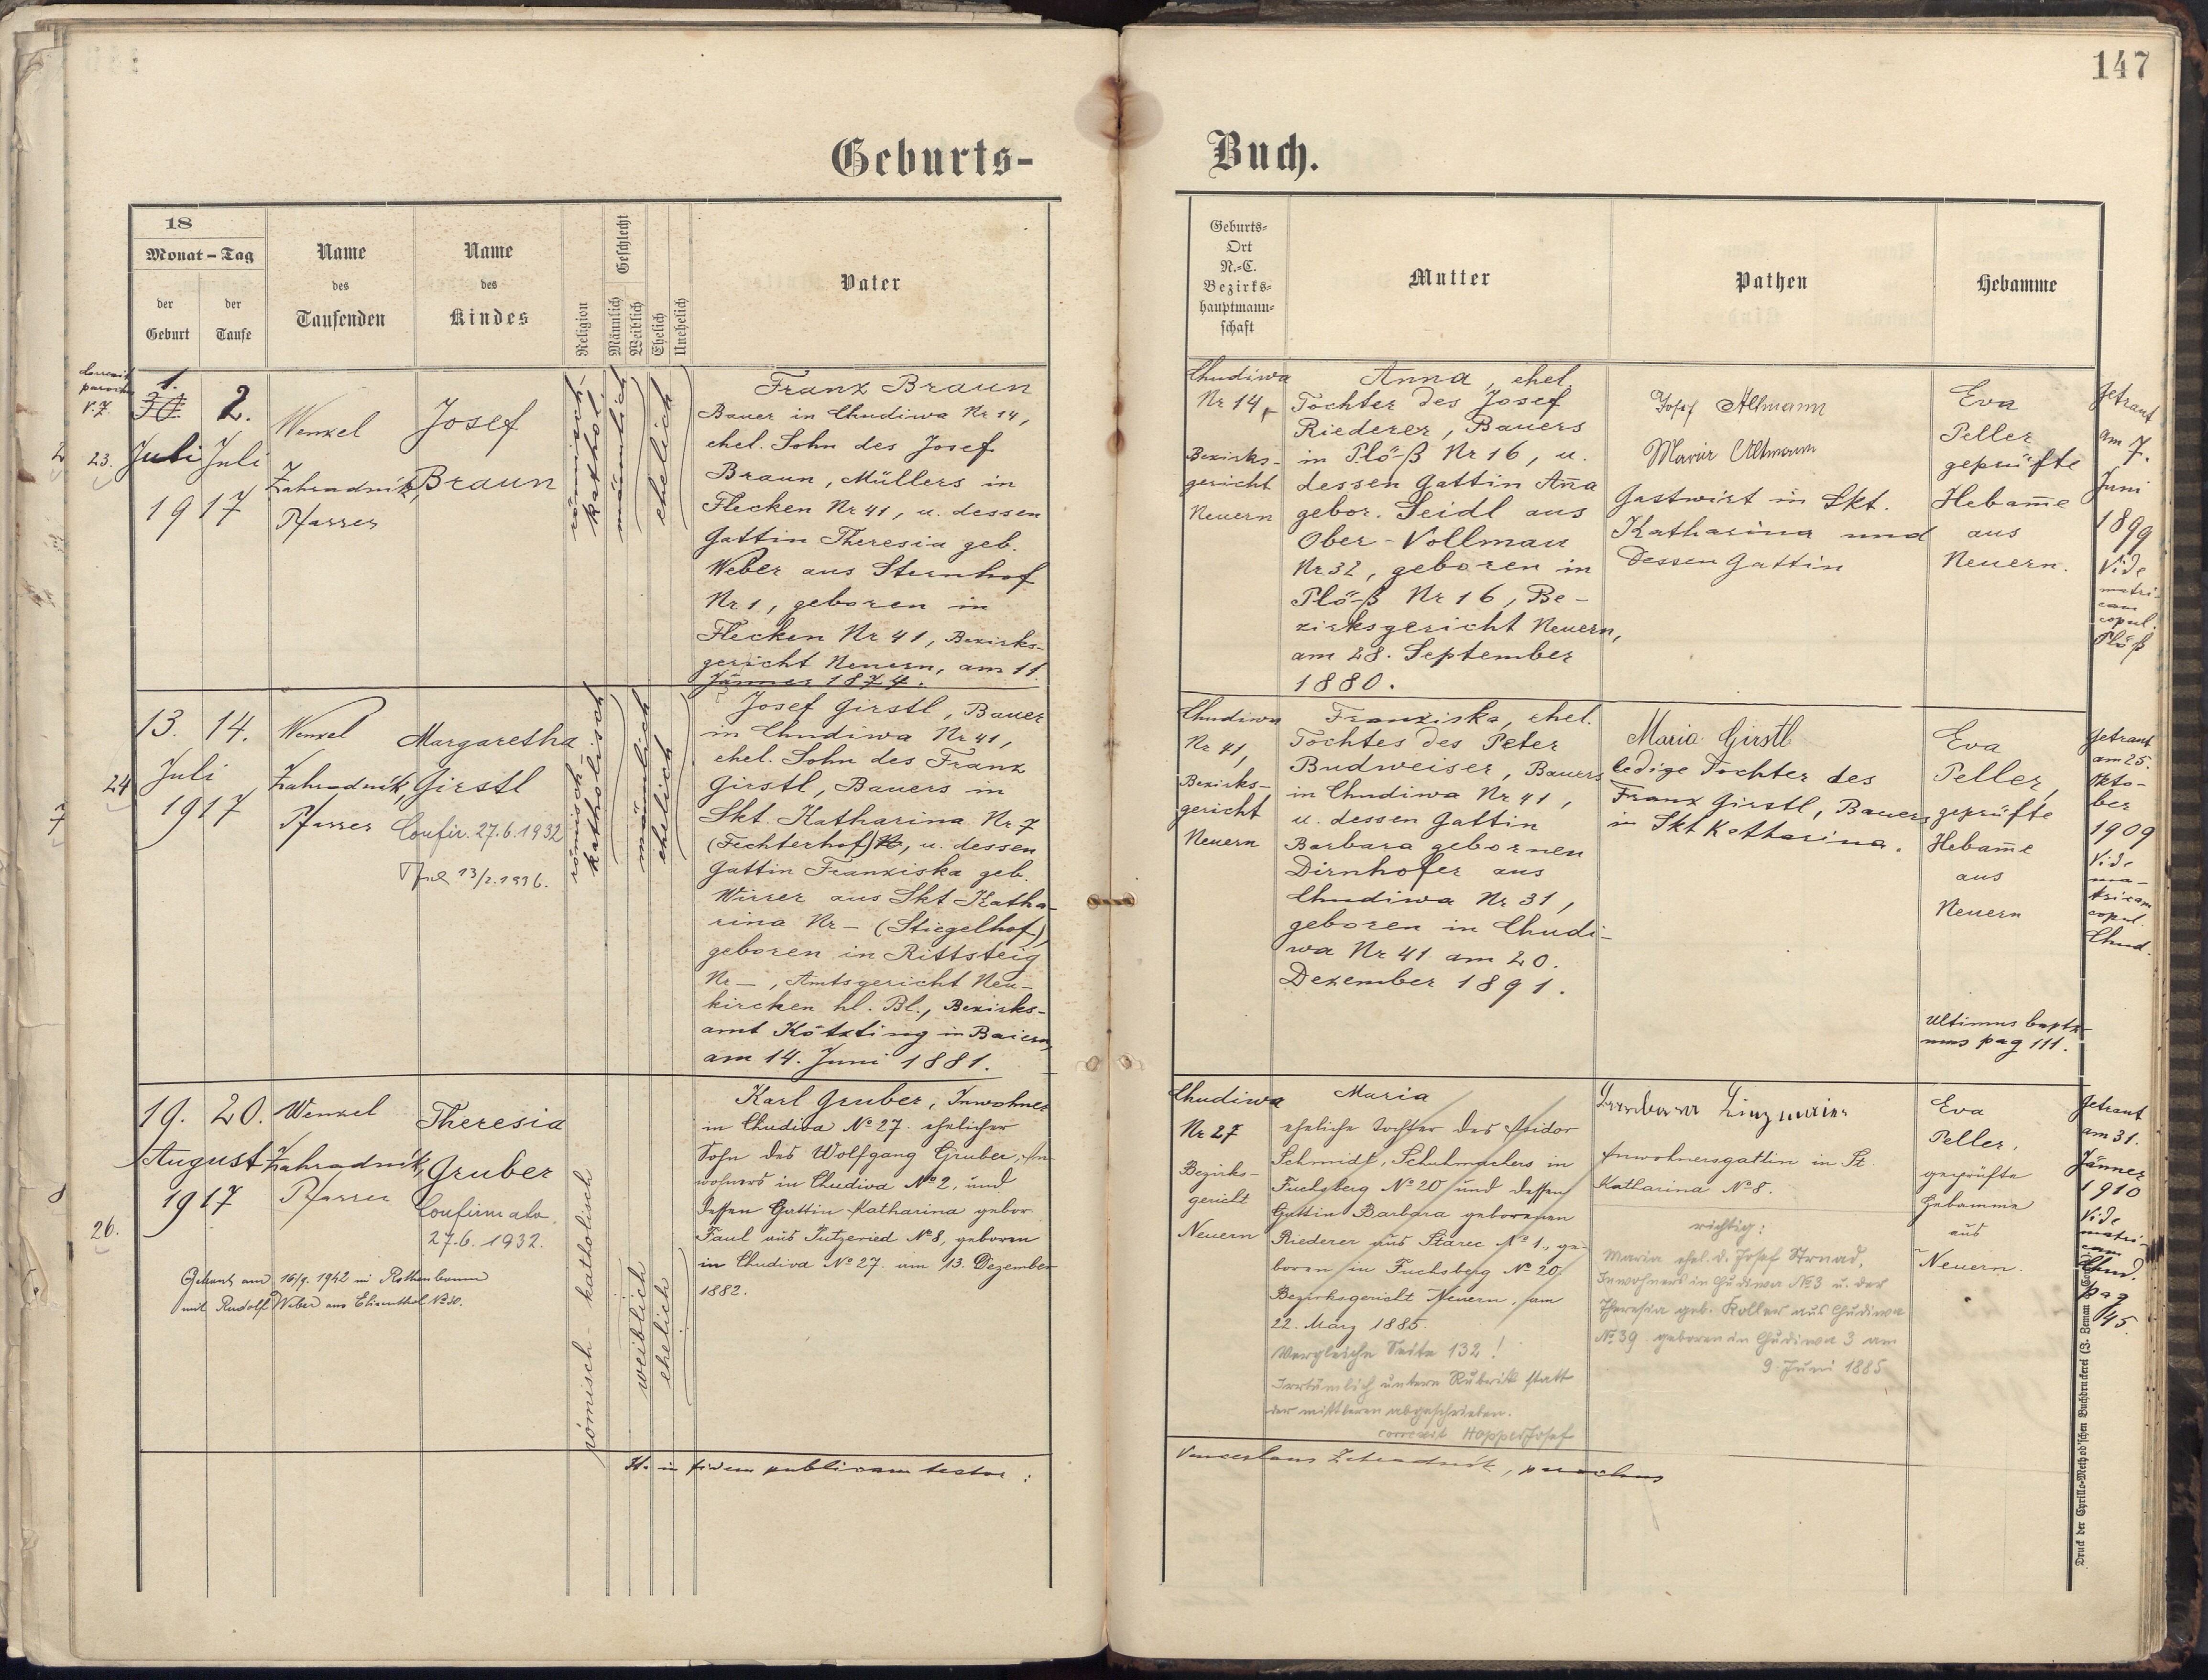 147
Geburts-
Buch.
18
Monat – Tag
der
Geburt
der
Taufe
Name
des
Taufenden
Name
des
Kindes
Religion
Geschlecht
Männlich
Weiblich
Ehelich
Unehelich
Vater
Geburts-
Ort
N.-C.
Bezirks-
hauptmann-
schaft
Mutter
Pathen
Hebamme
V. 7.
23.
1.
30.
Juli
2.
Juli
1917
Wenzel
Zahradník,
Pfarrer
Josef
Braun
römisch-
kathol.
männlich
ehelich
Franz Braun
Bauer in Chudiwa Nr 14,
ehel. Sohn des Josef
Braun, Müllers in
Flecken Nr 41, u. dessen
Gattin Theresia geb.
Weber aus Sternhof
Nr 1, geboren in
Flecken Nr 41, Bezirks-
gericht Neuern, am 11.
Jänner 1874.
Chudiwa
Nr 14,
Bezirks-
gericht
Neuern
Anna, ehel.
Tochter des Josef
Riederer, Bauers
in Plöß Nr 16, u.
dessen Gattin Ana
gebor. Seidl aus
Ober-Vollmau
Nr 32, geboren in
Plöß Nr 16, Be-
zirksgericht Neuern,
am 28. September
1880.
Josef Altmann
Maria Altmann
Gastwirt in Skt.
Katharina und
dessen Gattin
Eva
Peller
geprüfte
Hebame
aus
Neuern.
Getraut
am 7.
Juni
1899
Vide
matri-
cam
copul.
Plöß
24
13.
Juli
14.
1917
Wenzel
Zahradník,
Pfarrer
Margaretha
Girstl
Confir. 27.6.1932
römisch-
katholisch
männlich
ehelich
Josef Girstl, Bauer
in Chudiwa Nr 41,
ehel. Sohn des Franz
Girstl, Bauers in
Skt. Katharina Nr 7
(Fechterhof) Nr, u. dessen
Gattin Franziska geb.
Wirrer aus Skt Katha-
rina Nr – (Stiegelhof),
geboren in Rittsteig
Nr –, Amtsgericht Neu-
kirchen hl. Bl., Bezirks-
amt Kötzting in Baiern,
am 14. Juni 1881.
Chudiwa
Nr 41,
Bezirks-
gericht
Neuern
Franziska, ehel.
Tochter des Peter
Budweiser, Bauers
in Chudiwa Nr 41,
u. dessen Gattin
Barbara gebornen
Dirnhofer aus
Chudiwa Nr 31,
geboren in Chudi-
wa Nr 41 am 20.
Dezember 1891.
Maria Girstl
ledige Tochter des
Franz Girstl, Bauers
in Skt Katharina.
Eva
Peller,
geprüfte
Hebame
aus
Neuern
Getraut
am 25.
Okto-
ber
1909
Vide
ma-
tricam
copul.
Chud.
Ultimus baptiz-
mus pag 111.
26.
19.
August
20.
1917
Wenzel
Zahradník,
Pfarrer
Theresia
Gruber
27.6.1932.
Getraut am 16/9. 1942 in Rothenbaum
mit Rudolf Weber aus Elisenthal No 30.
römisch - katholisch
weiblich
ehelich
Karl Gruber, Inwohner
in Chudiva No 27. ehelicher
Sohn des Wolfgang Gruber, In-
wohners in Chudiva No 2, und
dessen Gattin Katharina gebor.
Faul aus Putzeried No 8, geboren
in Chudiva No 27. am 13. Dezember
1882.
Chudiwa
Nr 27
Bezirks-
gericht
Neuern
Maria
eheliche Tochter des Isidor
Schmidt, Schuhmachers in
Fuchsberg No 20 und dessen
Gattin Barbara geborenen
Riederer aus Starec No 1., ge-
boren in Fuchsberg No 20,
Bezirksgericht Neuern, am
22. März 1885.
Vergleiche Seite 132!
Irrtümlich untere Rubrik statt
der mittleren abgeschrieben.
correxit Hopper Josef
Inwohnersgattin in St.
Katharina No 8.
richtig:
Maria ehel. d. Josef Strnad,
Inwohners in Chudiwa No 3 u. der
Theresia geb. Koller aus Chudiwa
No 39 geboren in Chudiwa 3 am
9. Juni 1885
Eva
Peller,
geprüfte
Hebamme
aus
Neuern.
Getraut
am 31.
Jänner
1910
Vide
matri-
cam
Chud.
pag
45.
in fidem publicam testor:
Venceslaus Zahradník, parochus